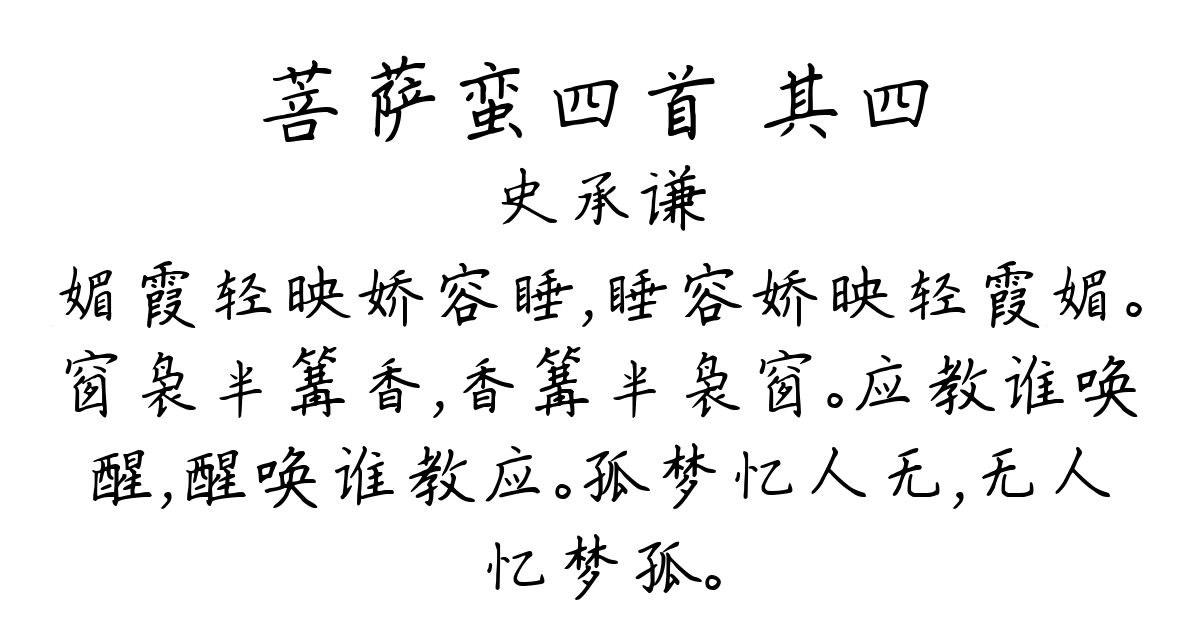 菩萨蛮四首 其四
史承谦
媚霞轻映娇容睡,睡容娇映轻霞媚。
窗袅半篝香,香篝半袅窗。应教谁唤
醒,醒唤谁教应。孤梦忆人无,无人
忆梦孤。